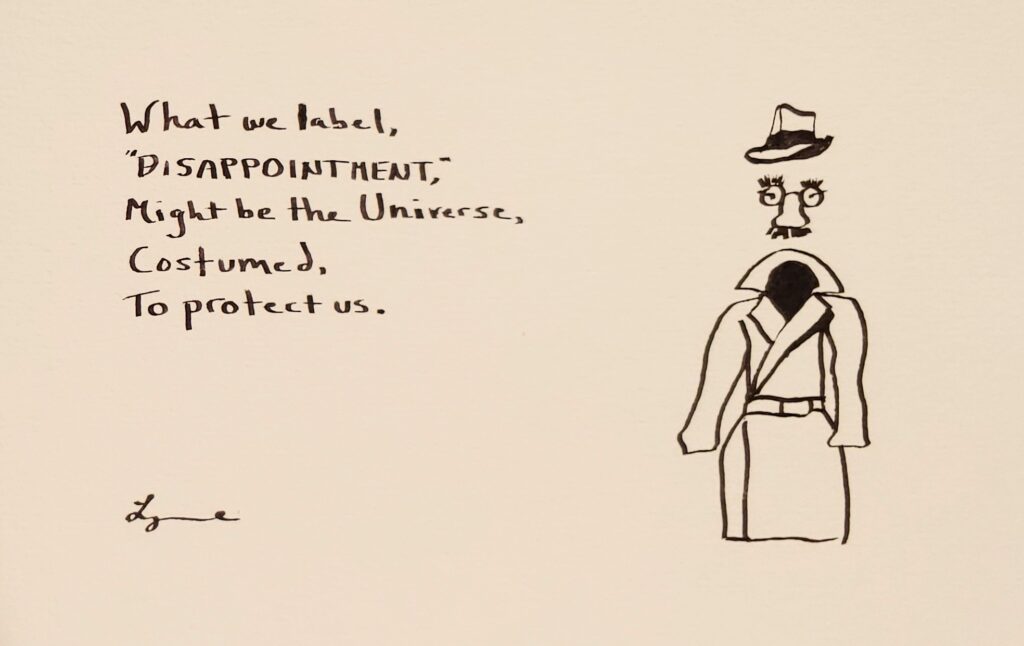 What we label,
"DISAPPOINTMENT,"
Might be the Universe,
Costumed,
To protect us.